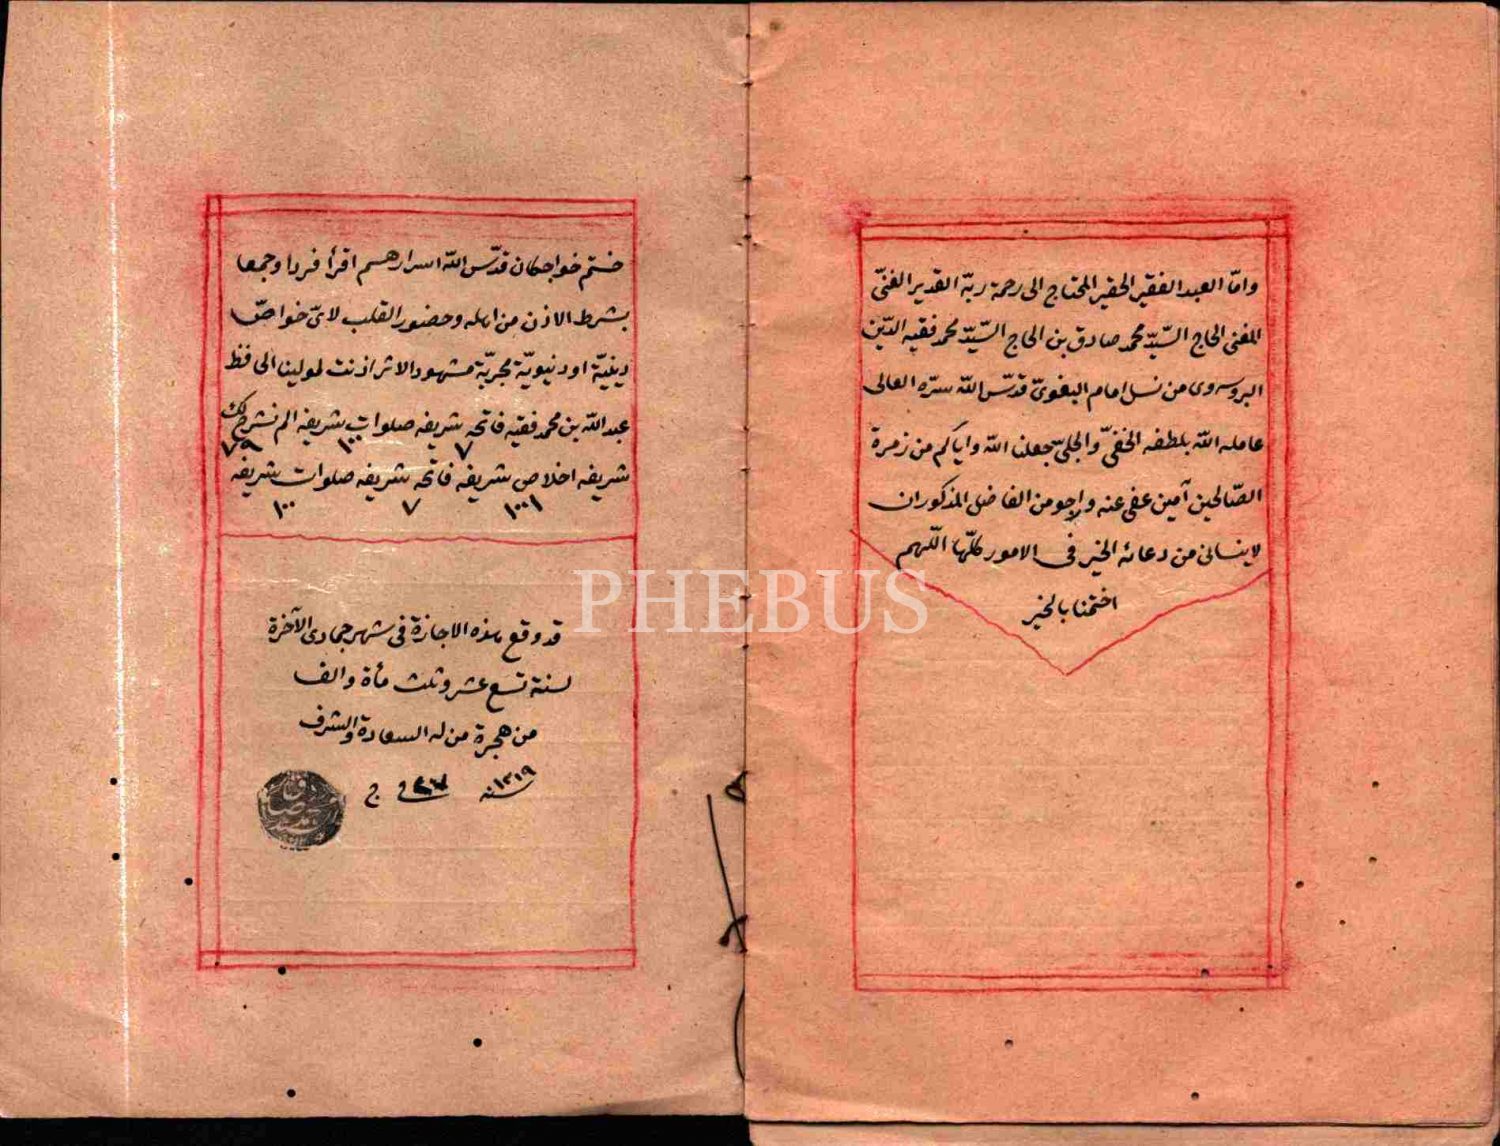 وامّا العبد الفقير الحقير المحتاج الى رحمة ربّه القدير الغنىّ
المغنى الحاج السّيّد محمد صادق بن الحاج السّيّد محمد فقيه الدّين
البروسوى من نسل امام البغوىّ قدّس اللّه سرّه العالى
عامله اللّه بلطفه الخفىّ والجلىّ جعلنا اللّه واياكم من زمرة
الصّالحين آمين عفى عنه وارجو من الفاضل المذكور ان
لا ينسانى من دعائه الخير فى الامور كلّها اللّهم
اختمنا بالخير
ختم خواجكان قدّس اللّه اسرارهم اقرأ فردا وجمعا
بشرط الاذن من اهله وحضور القلب لاىّ خواصّ
دينيّة او دنيويّة مجربّة مشهود الاثر اذنت لمولينا الحافظ
عبد اللّه بن محمد فقيه فاتحه شريفه صلوات شريفه الم نشرح لك
٧ ١٠٠ ٧٩
شريفه اخلاص شريفه فاتحه شريفه صلوات شريفه
١٠٠١ ٧ ١٠٠
PHEBUS
قد وقع هذه الاجازة فى شهر جمادى الآخرة
لسنة تسع عشر وثلث مأة والف
من هجرة من له السعادة والشرف
سنه ١٣١٩ فى ج